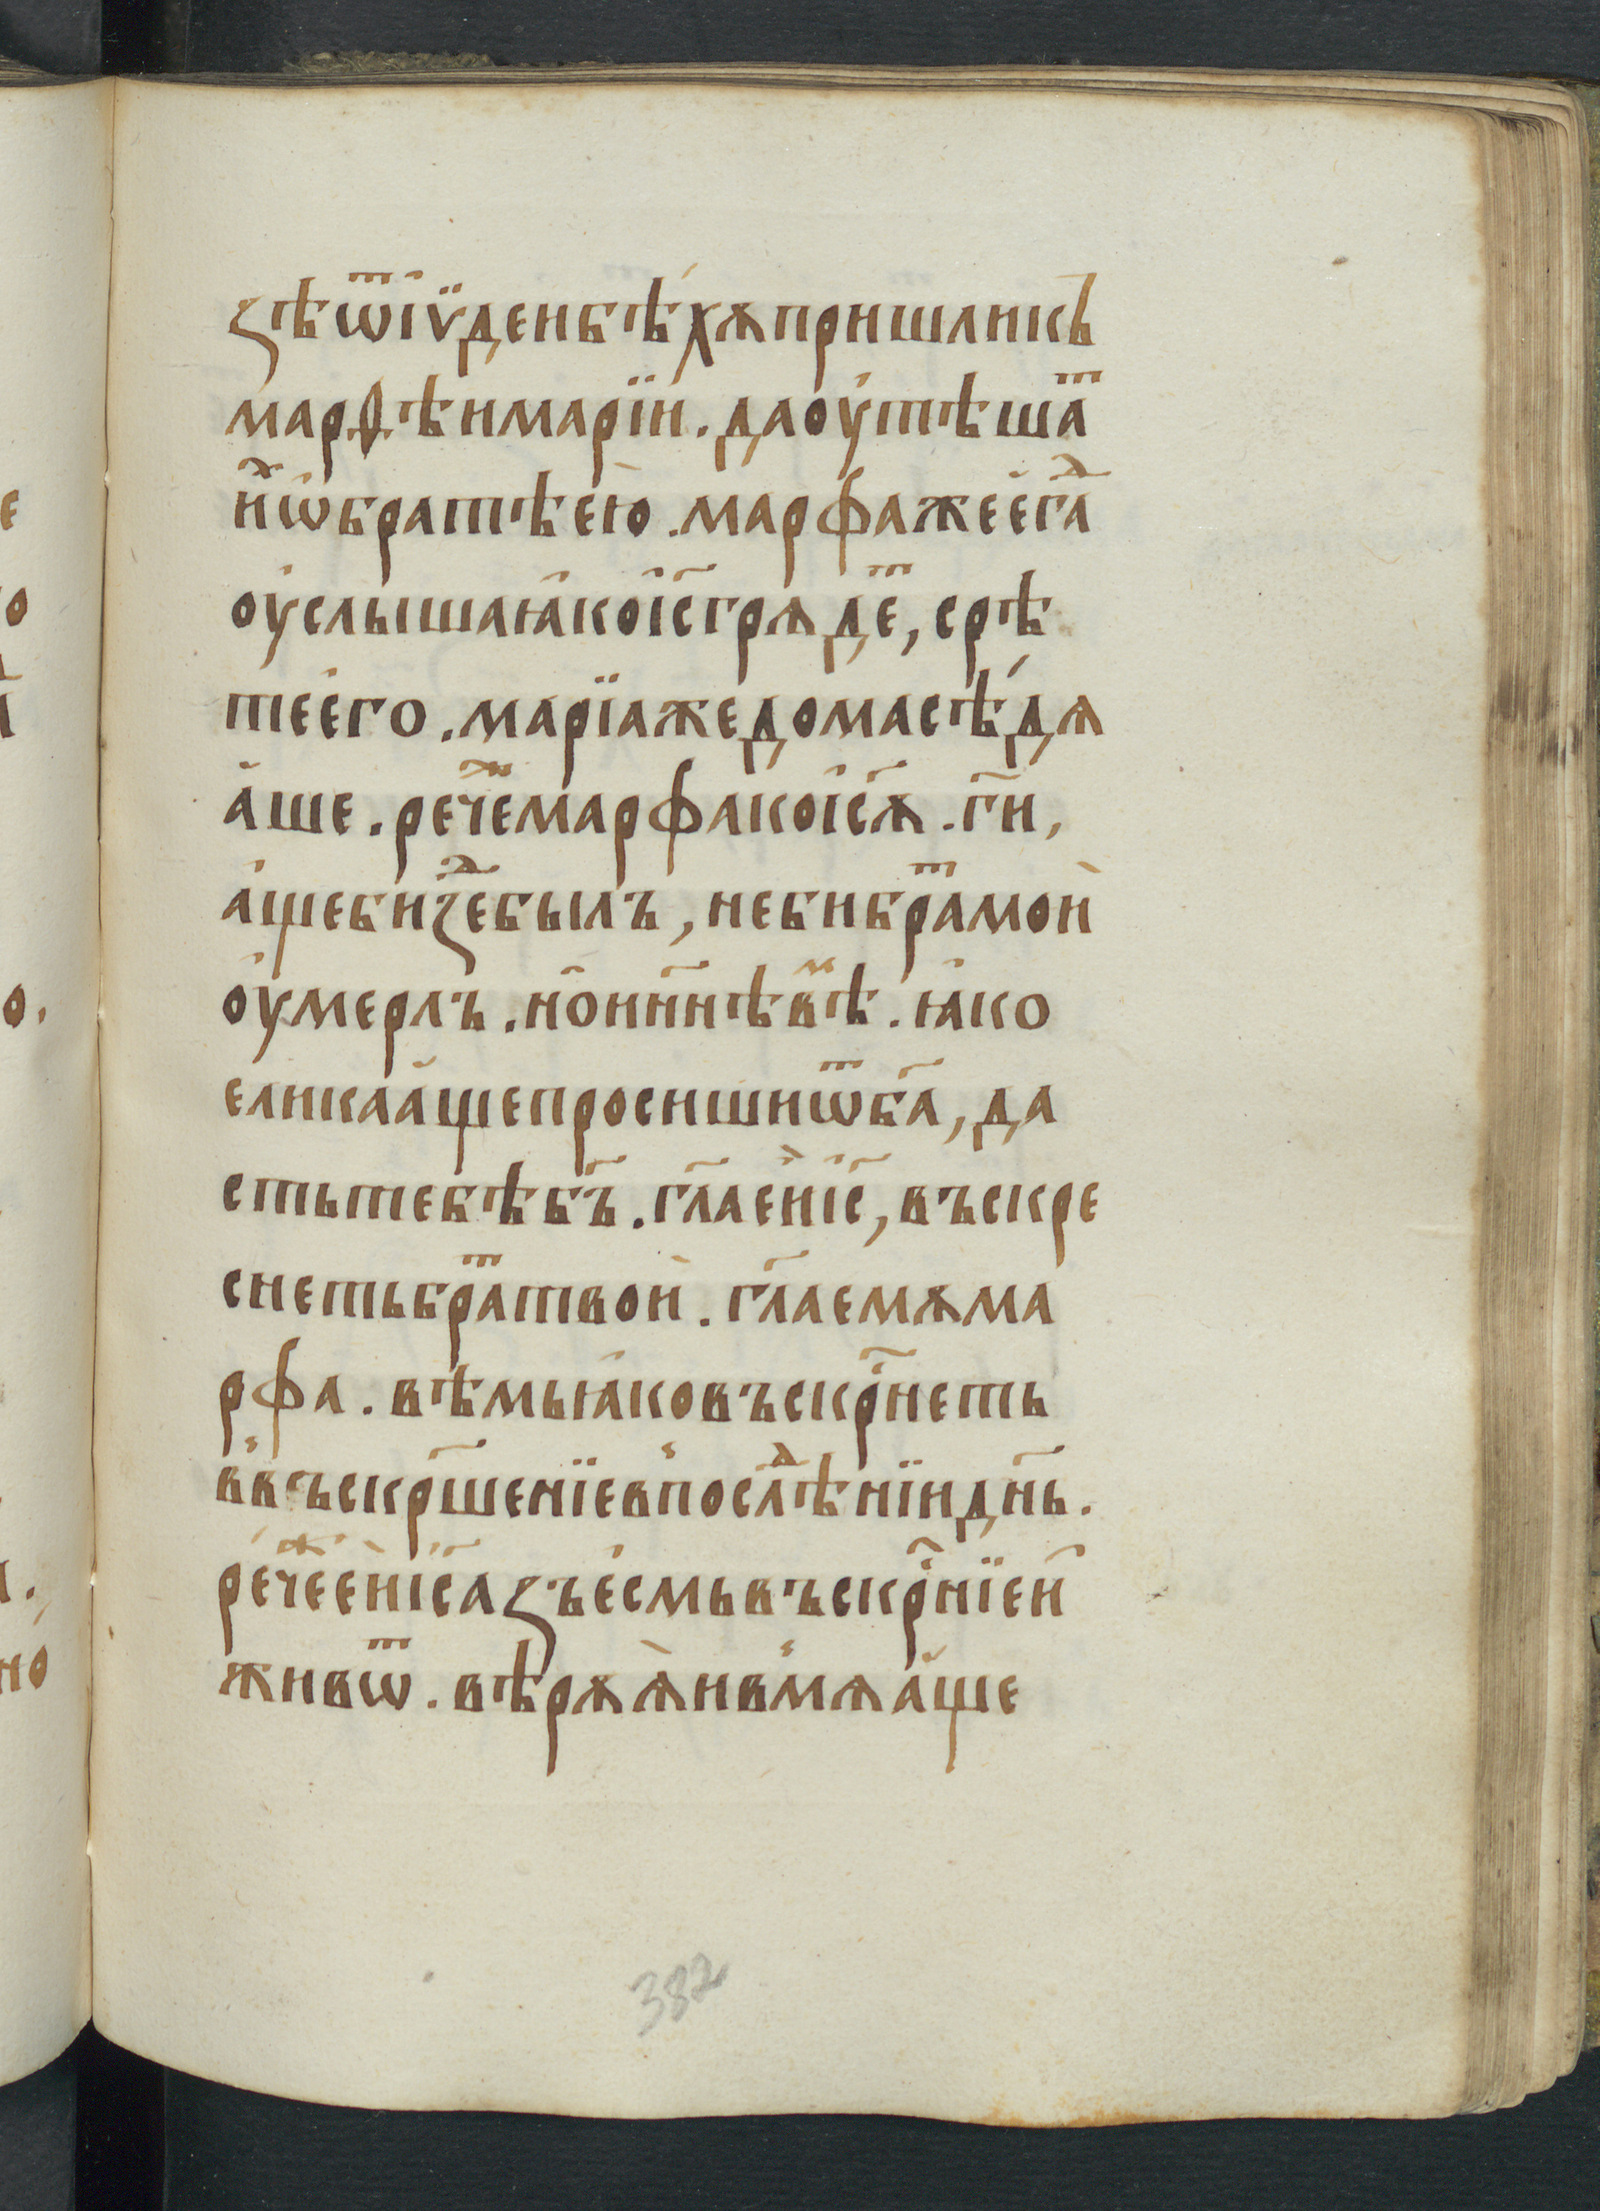 ꙁѣѿі҆ѵ̈деибѣ́хѫпришликъ
марѳѣимарїи. даоу҆тѣшаⷮ
иⷯ҆ѡ҆братѣею҆. марфажеегаⷣ
оу҆слышаꙗ҆кои҆с҃грѧдеⷮ, срѣ
теего. марїажедомасѣ́дѧ
а҆ше. речеⷤмарфакоі҆с҃ѫ. ги҃,
а҆щебиꙁеⷣбылъ, небибраⷮмои҆
оу҆мерлъ. ноинн҃ѣвѣⷨ. ꙗ҆ко
еликаа҆щепросишиѿба҃, да
стьтебѣбъ҃. гл҃аеи҆і҆с҃, въскре
снетьбраⷮтвои҆. гл҃аемѫма
рфа. вѣмьꙗ҆ковъскрⷭ҇неть
ввъскрⷭ҇шенїевпослѣⷣнїидн҃ь.
ре́чеⷤеи҆і҆с҃аꙁъе҆смьвъскрⷭ҇нїеи҆
живѿ. вѣрѫѧ҆ивмѧа҆ще
382